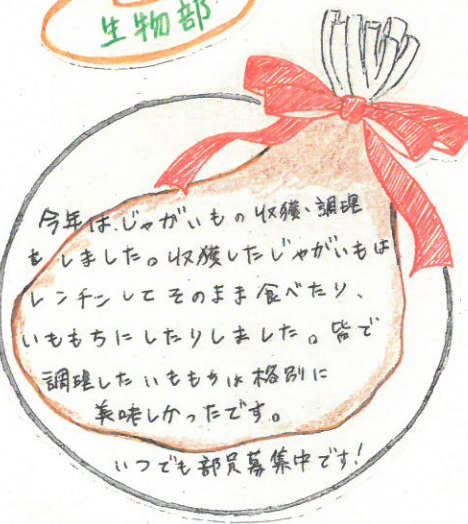 生物部
今年は、じゃがいもの収獲、調理
をしました。収獲したじゃがいもは
レンチンしてそのまま食べたり、
いももちにしたりしました。皆で
調理したいももちは格別に
美味しかったです。
いつでも部員募集中です！